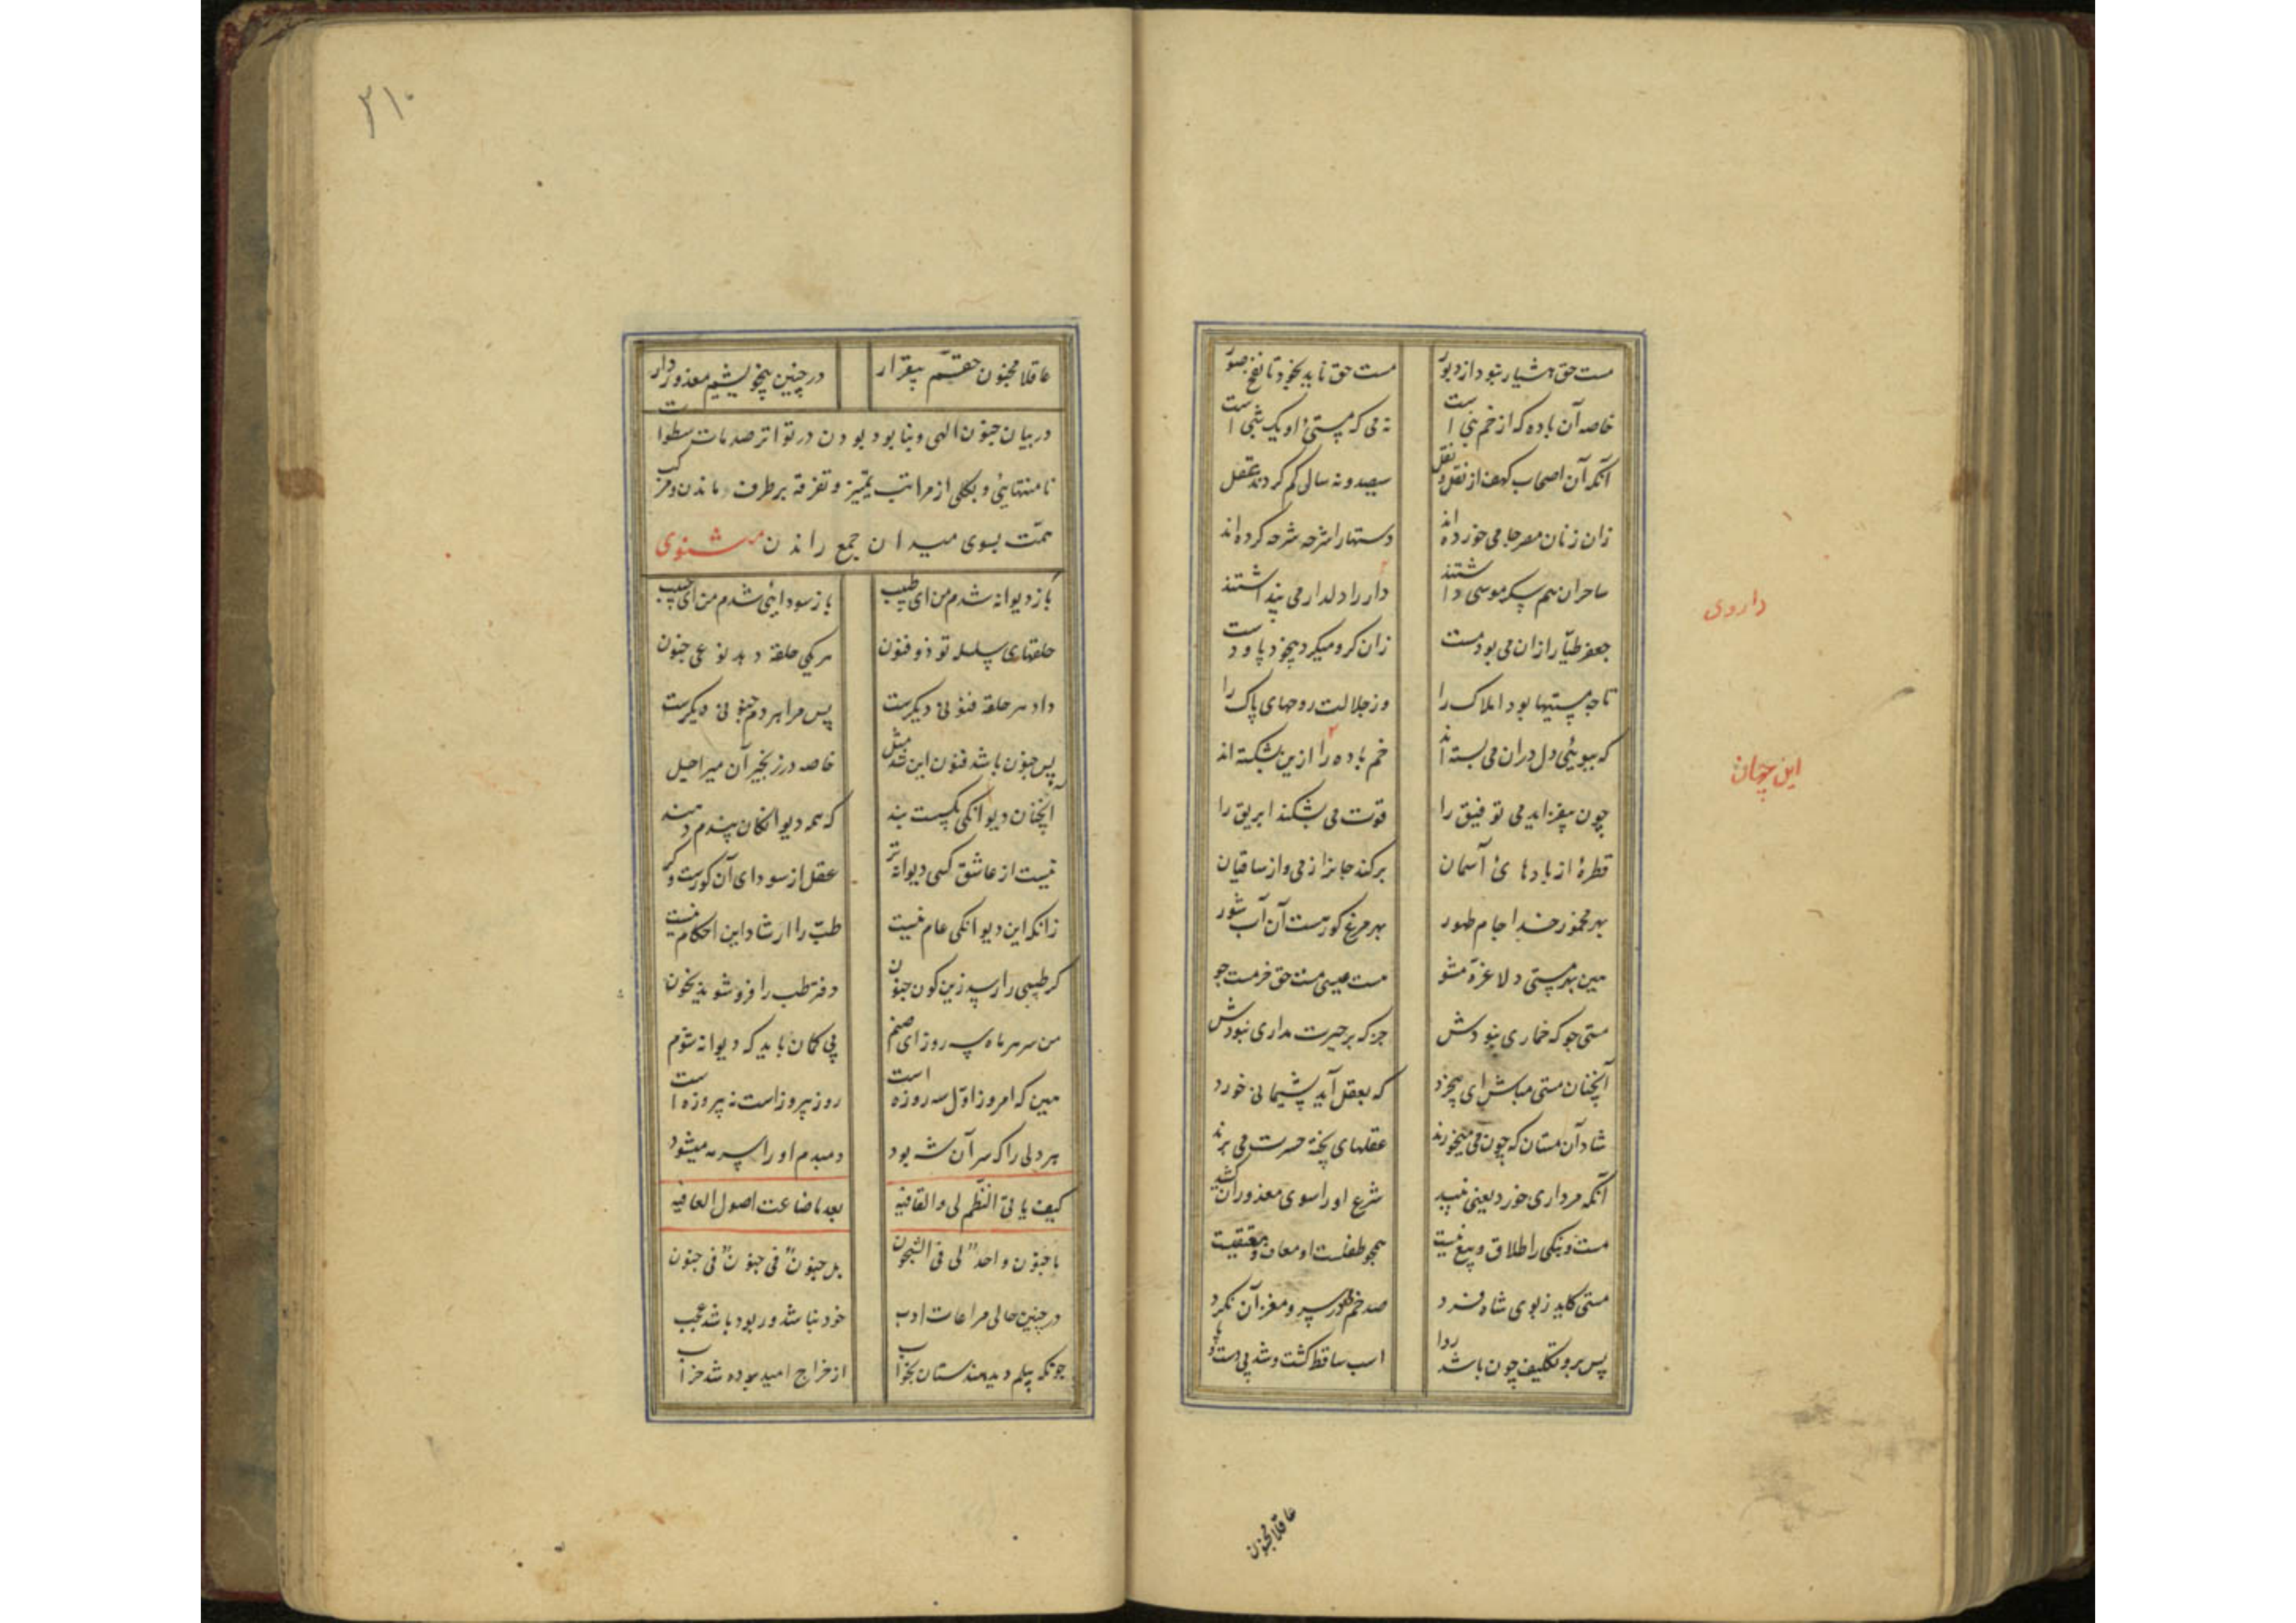 مست حق هشیار نبود از دبور مست حق ناید بخود تا نفخ صور
خاصه آن باده که از خم نبی است نه می که مستی او یک شبی است
آنکه آن اصحاب کهف از نقل و نقل سیصد و نه سال کم کردند عقل
زان زنان مصر جامی خورده اند دستها را شرحه شرحه کرده اند
ساحران هم سکر موسی داشتند دار را دلدار می پنداشتند
داروی
جعفر طیار ازان می بود مست زان کرو میکرد بیخود پا و دست
تا چه مستیها بود املاک را وز جلالت روحهای پاک را
که ببوئی دل دران می بسته اند خم باده را ازین بشکسته اند
این جهان
چون بیفزاید می توفیق را قوت می بشکند ابریق را
قطرهٔ از بادهای آسمان برکند جانرا ز می و از ساقیان
بهر مخمور خدا جام طهور بهر مرغ کورست آن آب شور
هین بهر مستی دلا غره مشو مست عیسی مست حق خر مست جو
مستی جو که خماری نبودش جز که بر حیرت مداری نبودش
آنچنان مستی مباش ای بیخرد که بعقل آید پشیمانی خورد
شاد آن مستان که چون می میخورند عقلهای پخته حسرت می برند
آنکه مرداری خورد یعنی نبید شرع او را سوی معذوران کشید
مست و بنگی را طلاق و بیع نیست همچو طفلست او معاف و معتقیست
مستی کاید ز بوی شاه فرد صد خم می در سر و مغز آن نکرد
پس برو تکلیف چون باشد روا اسب ساقط گشت و شد بی دست و پا
عاقلا مجنون
۳۱۰
عاقلا مجنون حقم بیقرار در چنین بیخویشیم معذور دار
در بیان جنون الهی و نابود بودن در تواتر صدمات سطوات
نامتناهی و بکلی از مراتب تمییز و تفرقه برطرف ماندن و مرکب
همت بسوی میدان جمع راندن مثنوی
باز دیوانه شدم من ای طبیب باز سودائی شدم من ای حبیب
حلقهای سلسله تو ذو فنون هر یکی حلقه دهد نوعی جنون
داد هر حلقه فنونی دیکرست پس مرا هر دم جنونی دیکرست
پس جنون باشد فنون این شد مثل خاصه در زنجیر آن میر اجل
آنچنان دیوانکی بکسست بند که همه دیوانکان پندم دهند
نیست از عاشق کسی دیوانه تر عقل از سودای آن کورست و کر
زانکه این دیوانکی عام نیست طب را ارشاد این احکام نیست
کر طبیبی را رسد زین کون جنون دفتر طب را فرو شوید بخون
من سر هر ماه سه روز ای صنم بی کمان باید که دیوانه شوم
هین که امروز اول سه روزه است روز پیروزست نه پیروزه است
هر دلی را که سر آن شه بود دمبدم او را سر مه میشود
کیف یاتی النظم لی والقافیه بعد ما ضاعت اصول العافیه
ما جنون واحد لی فی الشجون بل جنون فی جنون فی جنون
در چنین حالی مراعات ادب خود نباشد ور بود باشد عجب
چونکه پیلم دید هندستان بخواب از خراج امید بوده شد خراب